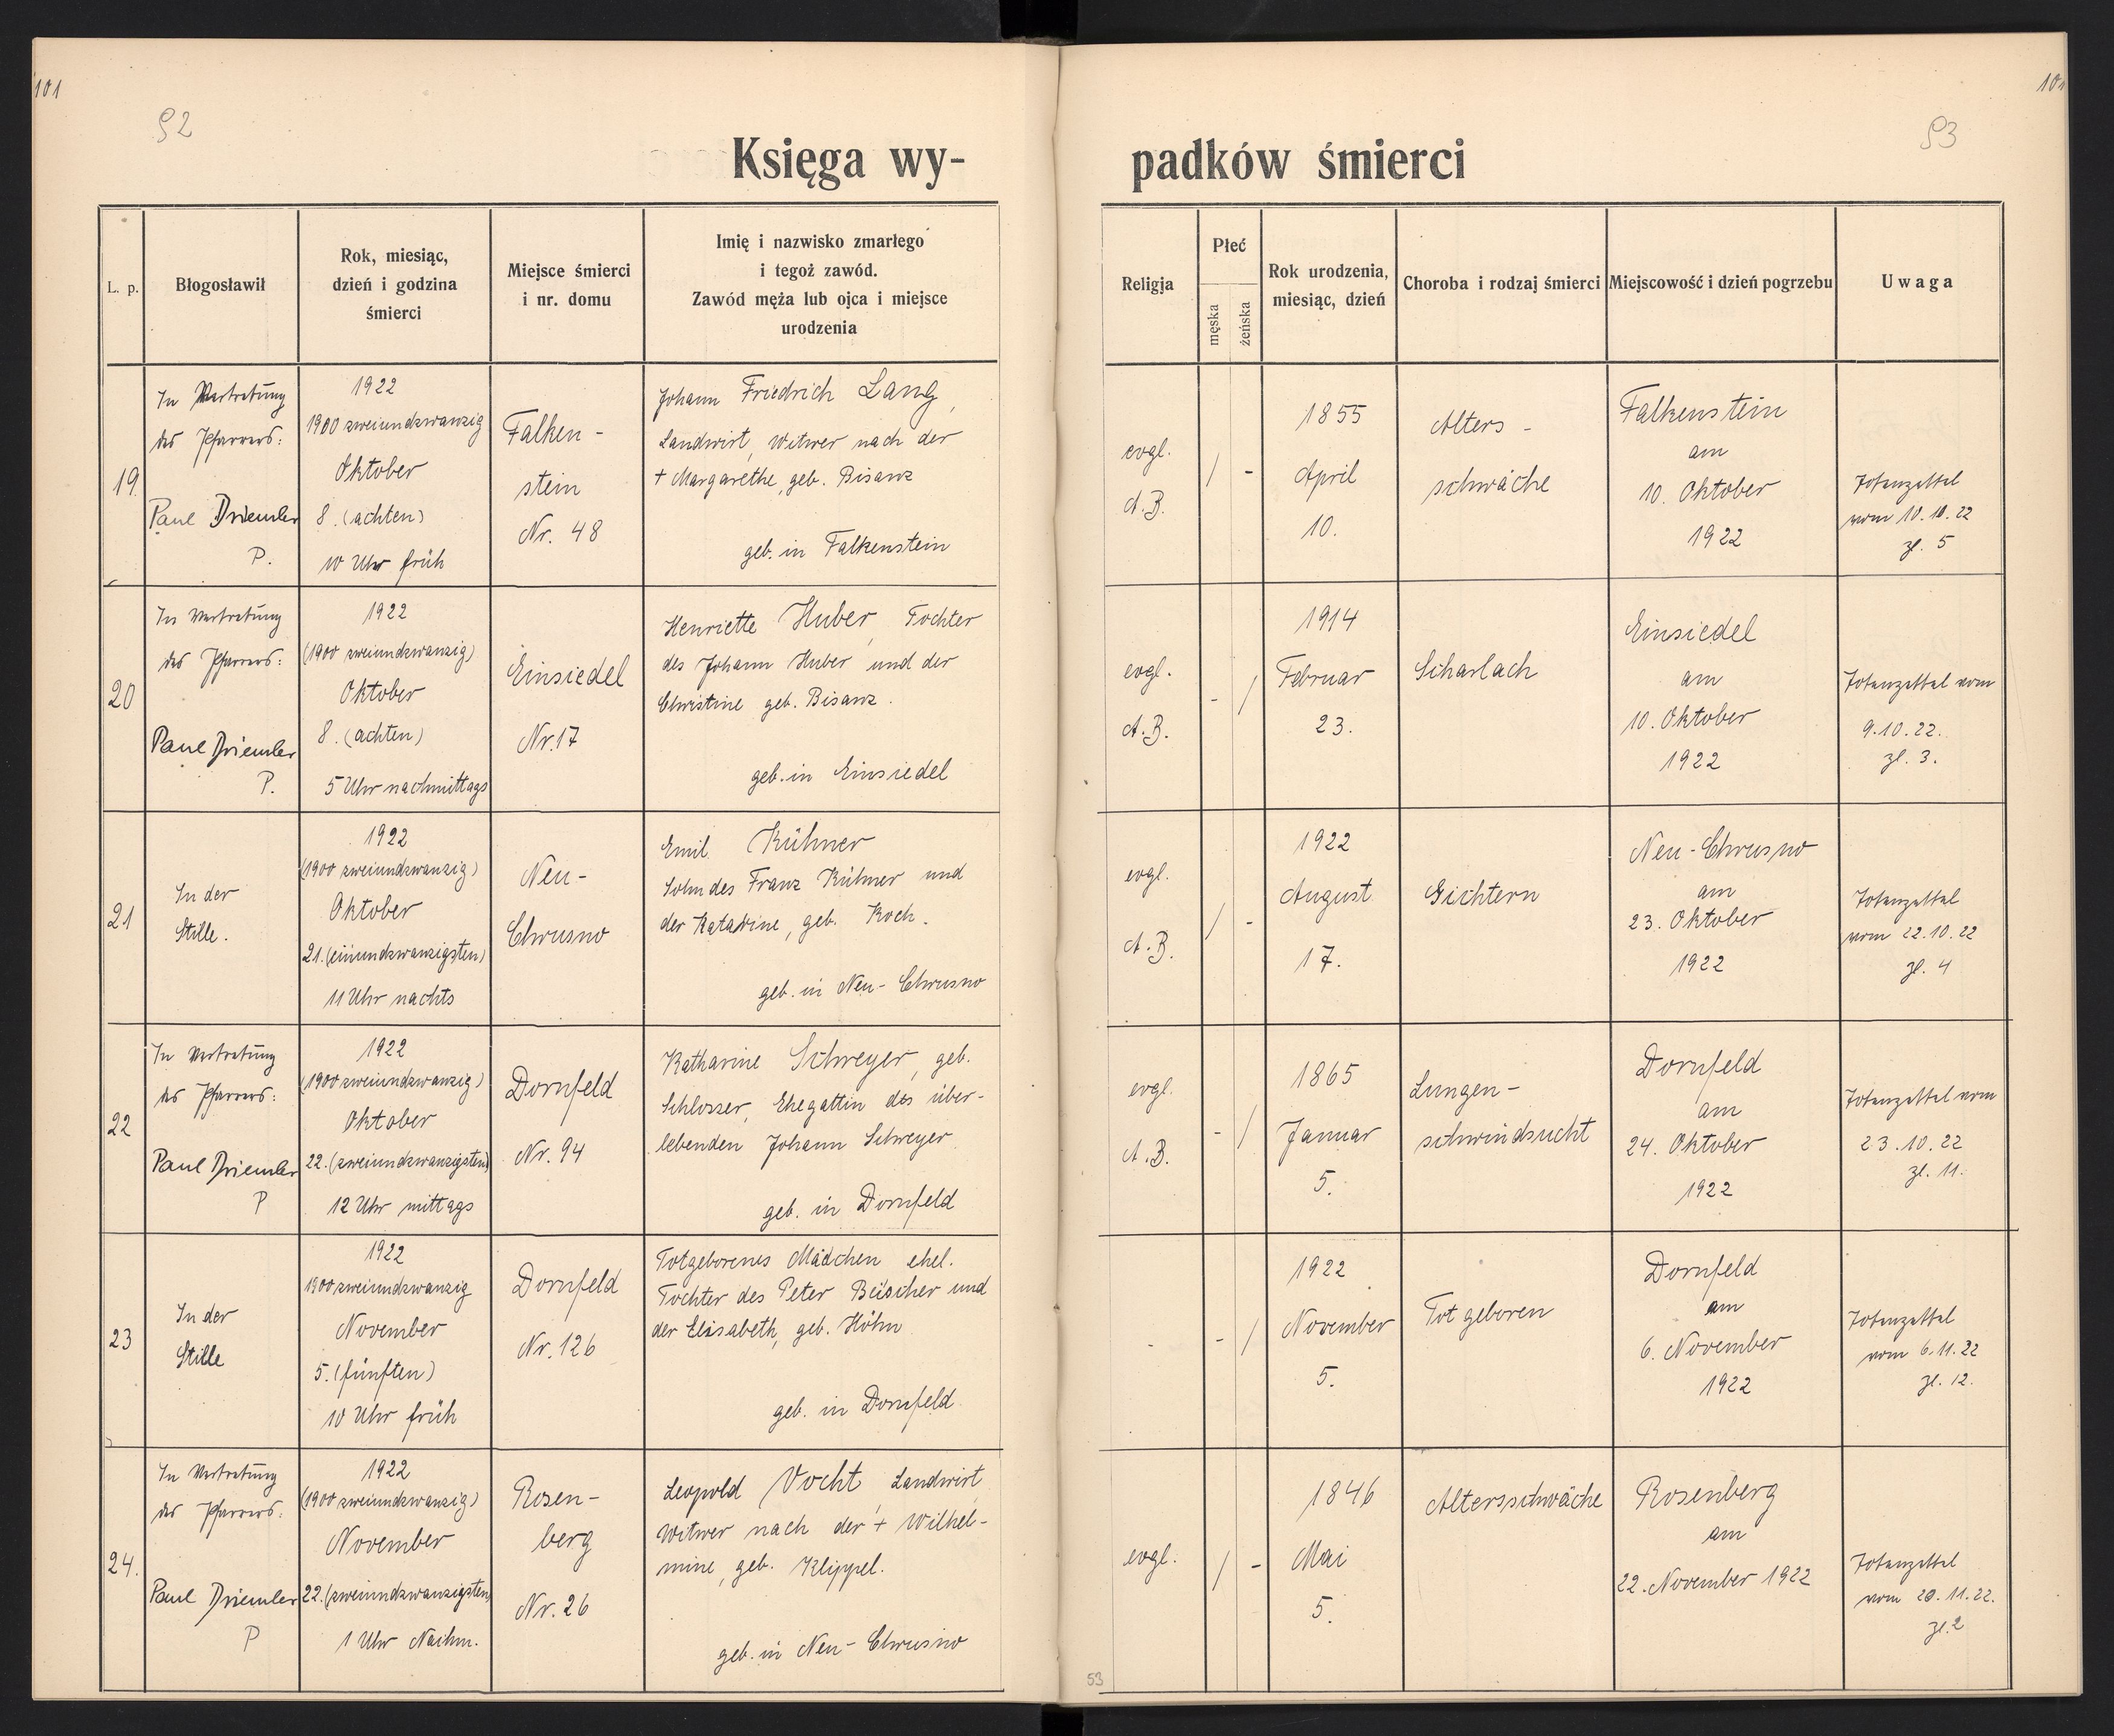 101
101
92
93
Księga wy-
padków śmierci
L. p.
Błogosławił
Rok, miesiąc,
dzień i godzina
śmierci
Miejsce śmierci
i nr. domu
Imię i nazwisko zmarłego
i tegoż zawód.
Zawód męża lub ojca i miejsce
urodzenia
Religja
Płeć
męska
żeńska
Rok urodzenia,
miesiąc, dzień
Choroba i rodzaj śmierci
Miejscowość i dzień pogrzebu
Uwaga
19.
In Vertretung
des Pfarrers:
Paul Driemler
P.
1922
1900 zweiundzwanzig
Oktober
8. (achten)
10 Uhr früh
Falken-
stein
Nr. 48
Johann Friedrich Lang,
Landwirt, Witwer nach der
+ Margarethe, geb. Bisanz
geb. in Falkenstein
evgl.
A.B.
/ -
1855
April
10.
Alters-
schwäche
Falkenstein
am
10. Oktober
1922
Totenzettel
vom 10.10.22
zl. 5
20
In Vertretung
des Pfarrers:
Paul Driemler
P.
1922
(1900 zweiundzwanzig)
Oktober
8. (achten)
5 Uhr nachmittags
Einsiedel
Nr. 17
Henriette Huber, Tochter
des Johann Huber und der
Christine geb. Bisanz.
geb. in Einsiedel
evgl.
A.B.
- /
1914
Februar
23.
Scharlach
Einsiedel
am
10. Oktober
1922
Totenzettel vom
9.10.22.
zl. 3.
21
In der
Stille.
1922
(1900 zweiundzwanzig)
Oktober
21. (einundzwanzigsten)
11 Uhr nachts
Neu-
Chrusno
Emil Kühner
Sohn des Franz Kühner und
der Katarine, geb. Koch.
geb. in Neu-Chrusno
evgl.
A.B.
/ -
1922
August
17.
Gichtern
Neu-Chrusno
am
23. Oktober
1922
Totenzettel
vom 22.10.22
zl. 4
22
In Vertretung
des Pfarrers:
Paul Driemler
P
1922
(1900 zweiundzwanzig)
Oktober
22. (zweiundzwanzigsten)
12 Uhr mittags
Dornfeld
Nr. 94
Katharine Schreyer, geb.
Schlosser, Ehegattin des über-
lebenden Johann Schreyer
geb. in Dornfeld
evgl.
A.B.
- /
1865
Januar
5.
Lungen-
schwindsucht
Dornfeld
am
24. Oktober
1922
Totenzettel vom
23.10.22
zl. 11.
23
In der
Stille
1922
1900 zweiundzwanzig
November
5. (fünften)
10 Uhr früh
Dornfeld
Nr. 126
Totgeborenes Mädchen ehel.
Tochter des Peter Büscher und
der Elisabeth, geb. Höhn
geb. in Dornfeld
-
- /
1922
November
5.
Tot geboren
Dornfeld
am
6. November
1922
Totenzettel
vom 6.11.22
zl. 12.
24.
In Vertretung
des Pfarrers:
Paul Driemler
P
1922
(1900 zweiundzwanzig)
November
22. (zweiundzwanzigsten)
1 Uhr Nachm.
Rosen-
berg
Nr. 26
Leopold Vocht, Landwirt
Witwer nach der + Wilhel-
mine, geb. Klippel.
geb. in Neu-Chrusno
evgl.
/ -
1846
Mai
5.
Altersschwäche
Rosenberg
am
22. November 1922
Totenzettel
vom 20.11.22.
zl. 2
53